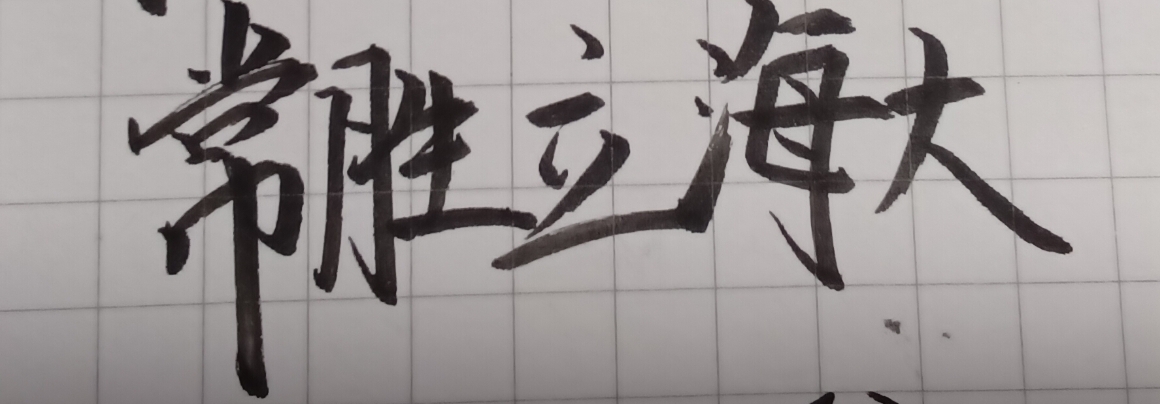 常胜立海大